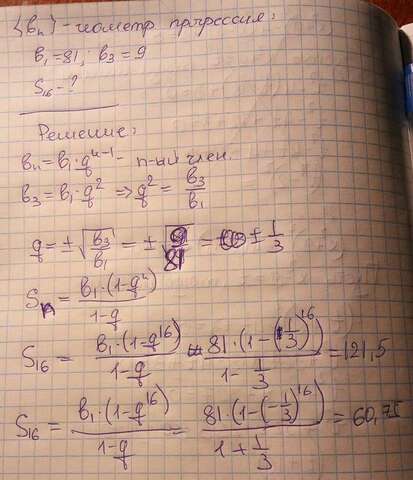 {bn} - геометр прогрессия;
b₁=81; b₃=9
S₁₆-?
Решение:
bn=b₁·q^(n-1) - n-ый член.
b₃=b₁·q² => q² = b₃/b₁
q = ±√(b₃/b₁) = ±√(9/81) = ± 1/3
Sn = b₁·(1-qⁿ)/(1-q)
S₁₆ = b₁·(1-q¹⁶)/(1-q) = 81·(1-(1/3)¹⁶)/(1-1/3) = 121,5
S₁₆ = b₁·(1-q¹⁶)/(1-q) = 81·(1-(-1/3)¹⁶)/(1+1/3) = 60,75